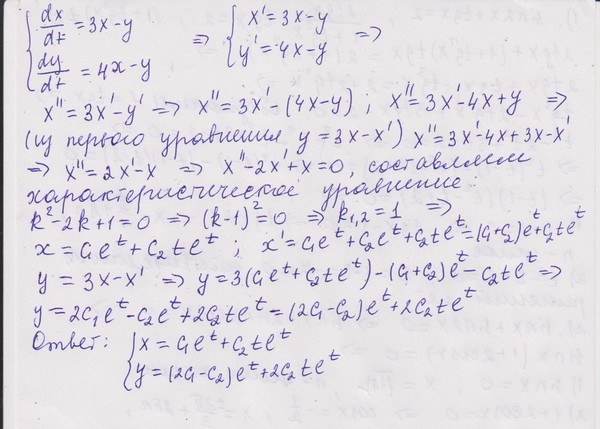 {dx/dt = 3x-y ⇒ {x' = 3x-y ⇒
{dy/dt = 4x-y , {y' = 4x-y
x'' = 3x'-y' ⇒ x'' = 3x'-(4x-y) , x'' = 3x'-4x+y ⇒
(из первого уравнения y = 3x-x') x'' = 3x'-4x+3x-x'
⇒ x'' = 2x-x ⇒ x''-2x'+x=0, составляем
характеристическое уравнение:
k²-2k+1=0 ⇒ (k-1)²=0 ⇒ k₁,₂=1 ⇒
x = c₁eᵗ+c₂teᵗ ; x' = c₁eᵗ+c₂eᵗ+c₂teᵗ=(c₁+c₂)eᵗ+c₂teᵗ
y = 3x-x' ⇒ y=3(c₁eᵗ+c₂teᵗ)-(c₁+c₂)eᵗ-c₂teᵗ ⇒
y=2c₁eᵗ-c₂eᵗ+2c₂teᵗ=(2c₁-c₂)eᵗ+2c₂teᵗ
Ответ: {x = c₁eᵗ+c₂teᵗ
{y=(2c₁-c₂)eᵗ+2c₂teᵗ